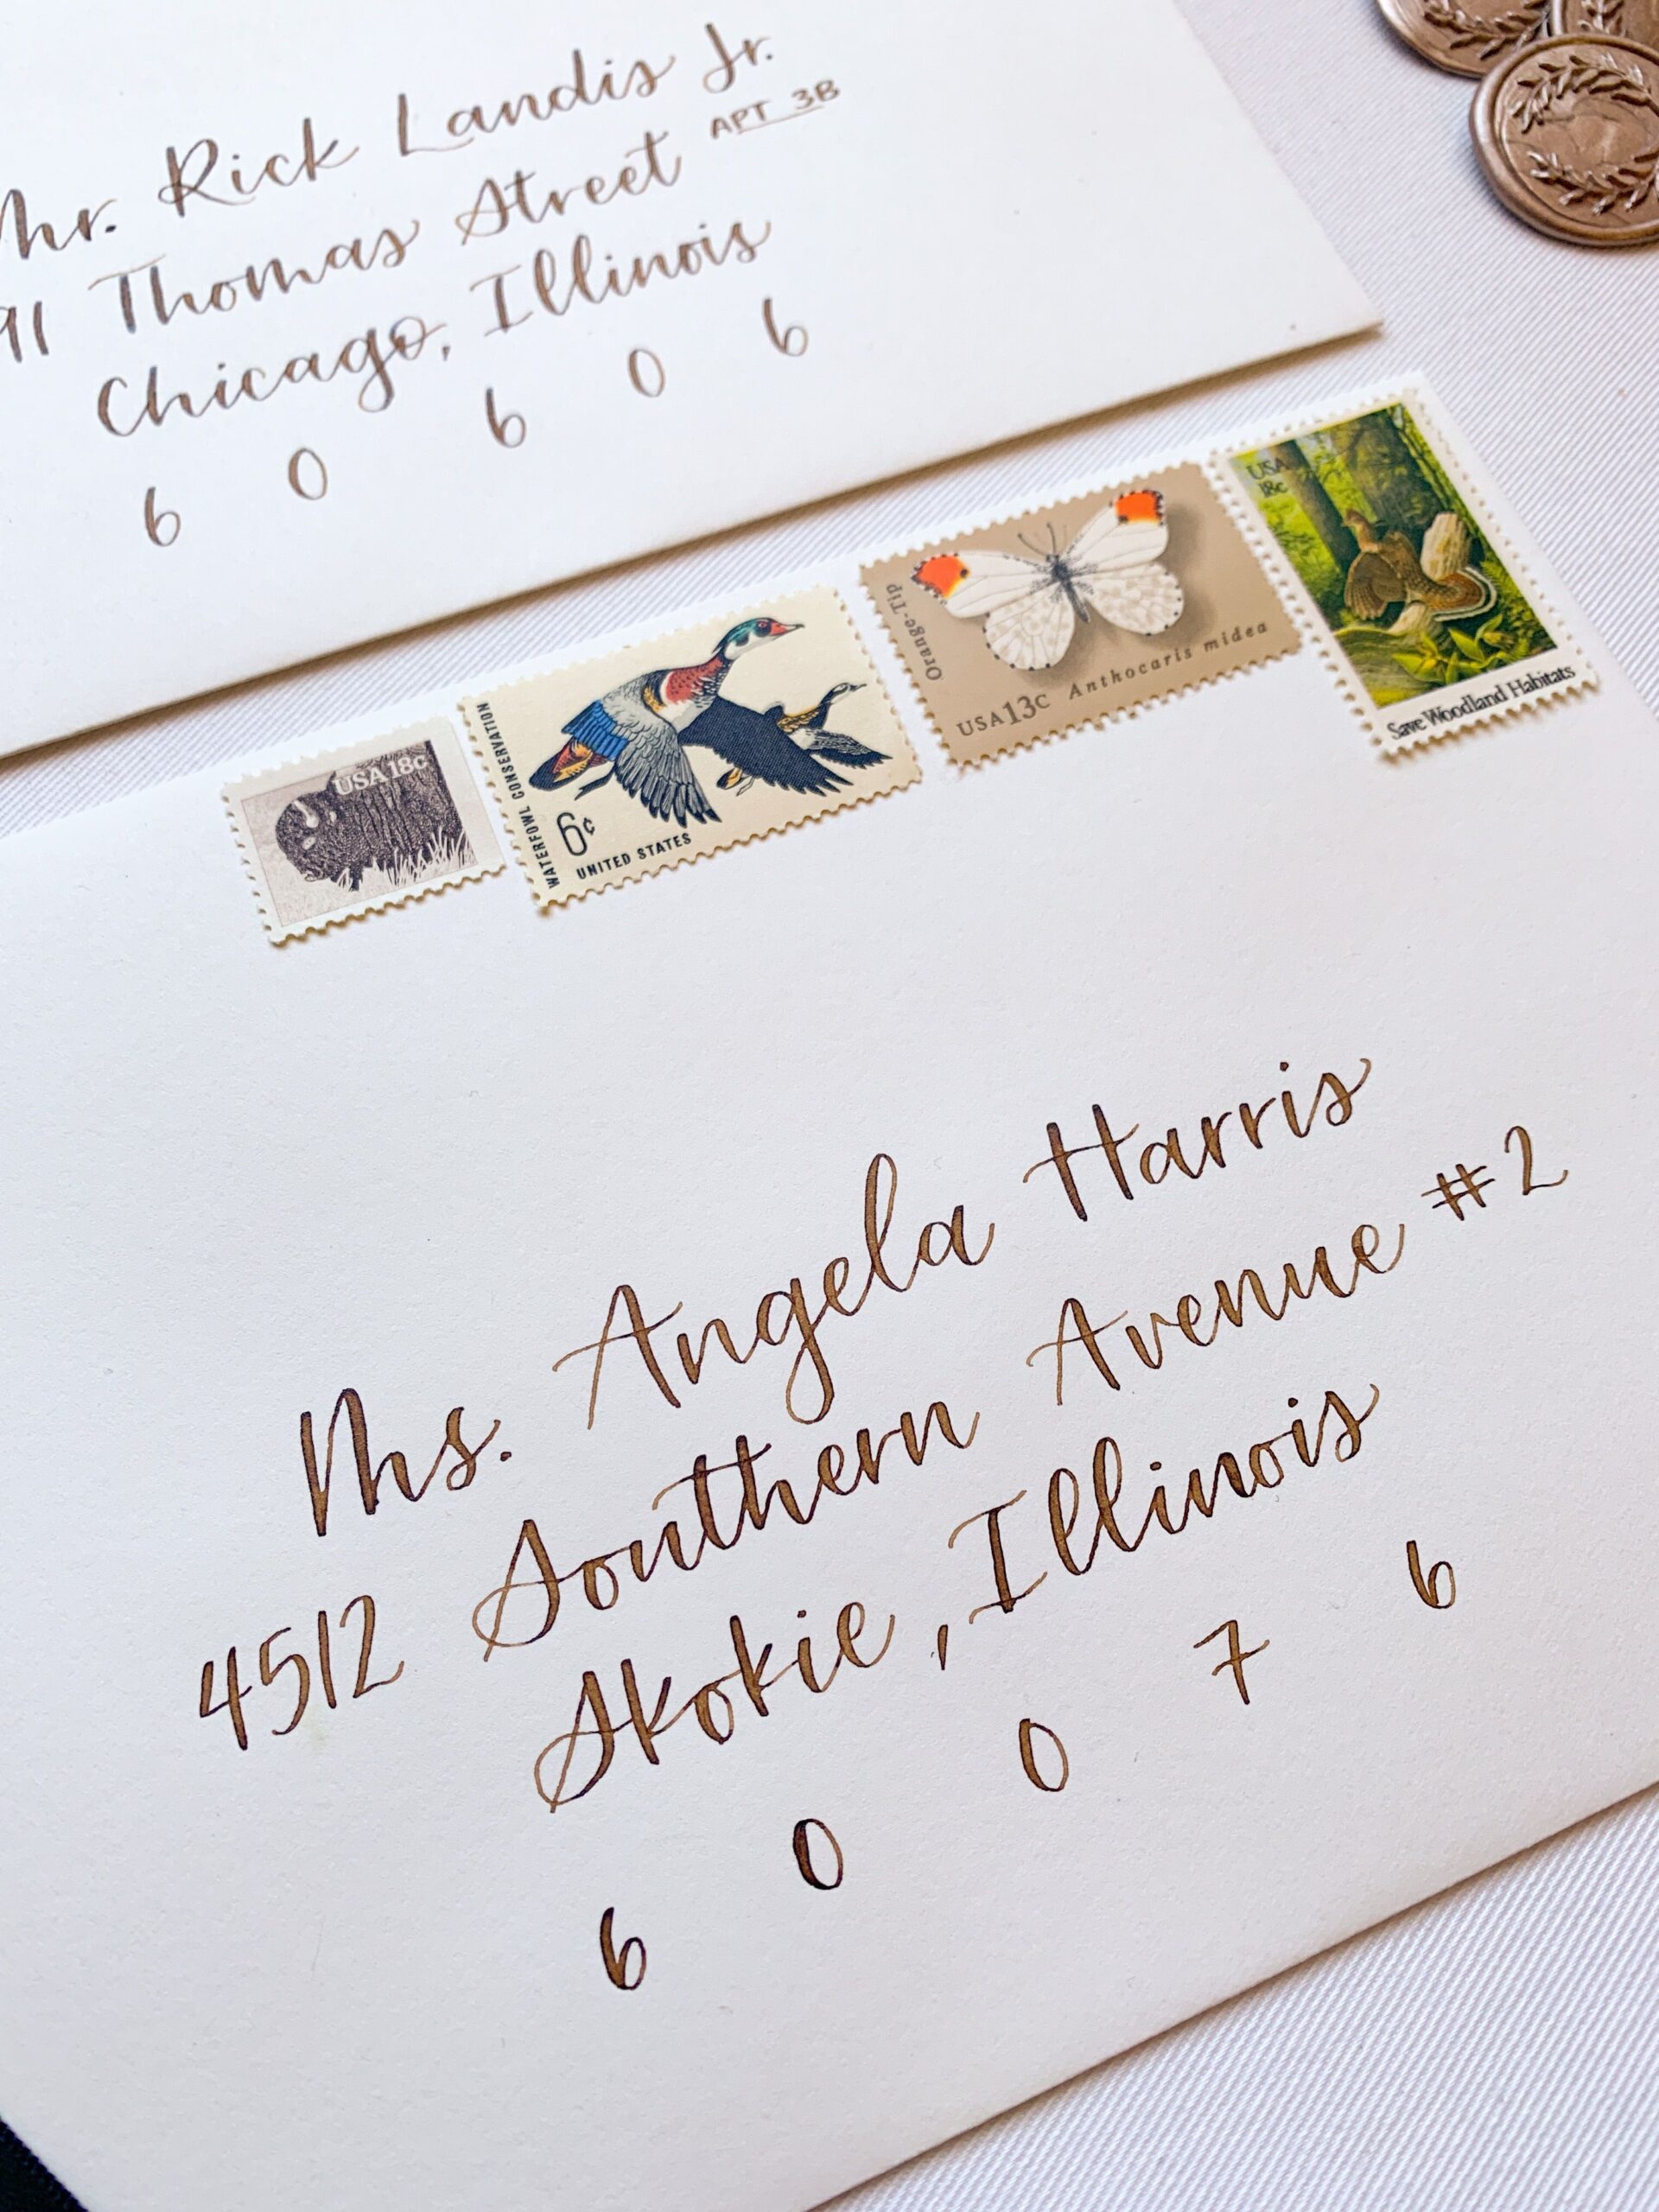 Mr. Rick Landis Jr.
91 Thomas Street APT 3B
Chicago, Illinois
6 0 6 0 6
USA 18c
WATERFOWL CONSERVATION
6c
UNITED STATES
Orange-Tip
USA 13c Anthocaris midea
USA
18c
Save Woodland Habitats
Ms. Angela Harris
4512 Southern Avenue #2
Skokie, Illinois
6 0 0 7 6